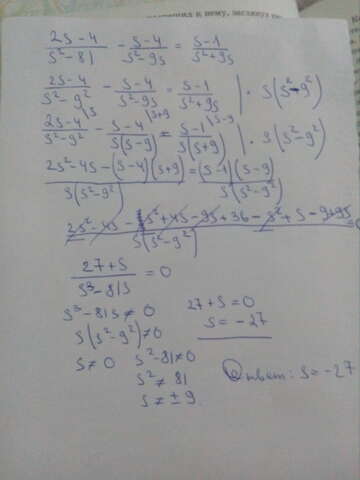 2s-4/s²-81 - s-4/s²-9s = s-1/s²+9s
2s-4/s²-9² - s-4/s²-9s = s-1/s²+9s | · s(s²-9²)
2s-4/s²-9² \s - s-4/s(s-9) \s+9 = s-1/s(s+9) \s-9 | · s(s²-9²)
2s²-4s-(s-4)(s+9)/s(s²-9²) = (s-1)(s-9)/s(s²-9²)
2s²-4s-s²+4s-9s+36-s²+s-9+9s/s(s²-9²) = 0
27+s/s³-81s = 0
s³-81s≠0 27+s=0
s(s²-9²)≠0 s=-27
s≠0 s²-81≠0
s²≠81 Ответ: s=-27
s≠±9